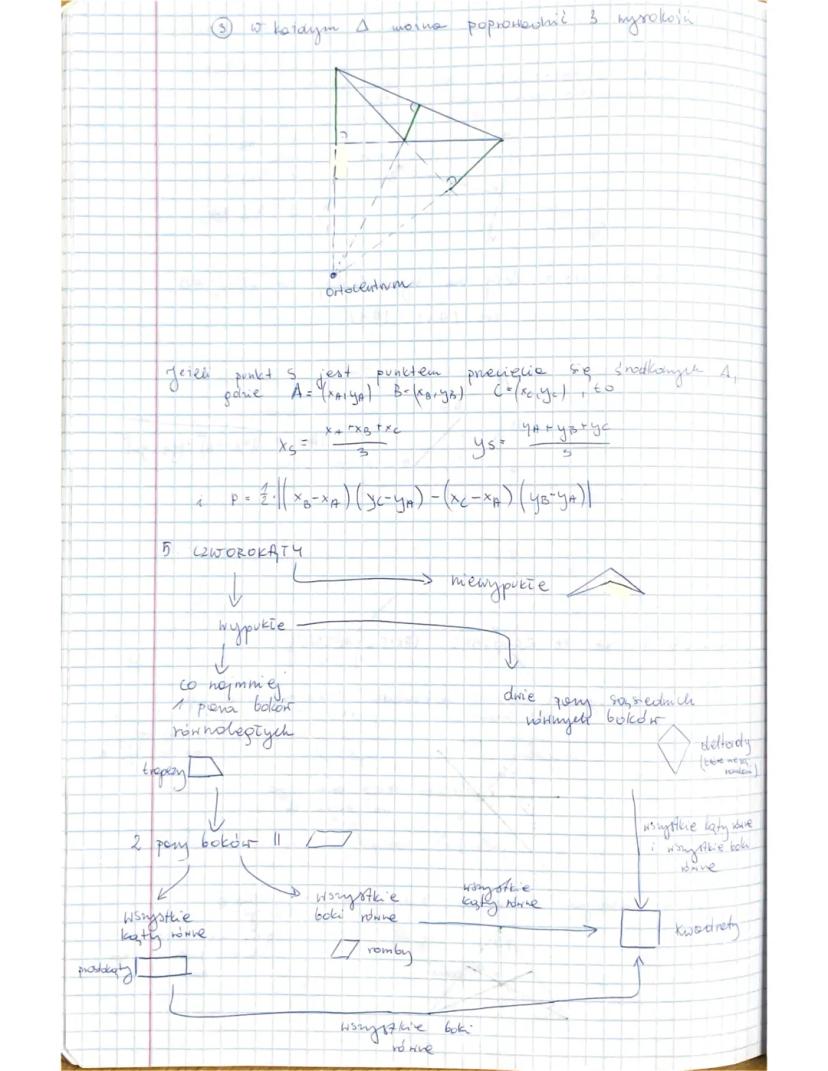 ③ W każdym Δ można poprowadzić 3 wysokości
ortocentrum
Jeżeli punkt S jest punktem przecięcia się środkowych Δ,
gdzie A=(xA,yA) B=(xB,yB) C=(xC,yC), to
xS = (xA+xB+xC)/3 yS = (yA+yB+yC)/3
i P = 1/2·|(xB-xA)(yC-yA)-(xC-xA)(yB-yA)|
5 CZWOROKĄTY
niewypukłe
wypukłe
co najmniej
1 para boków
równoległych
dwie pary sąsiednich
równych boków
deltoidy
trapezy
2 pary boków II
wszystkie kąty równe
i wszystkie boki
równe
wszystkie
kąty równe
wszystkie
boki równe
wszystkie
kąty równe
kwadraty
romby
prostokąty
wszystkie boki
równe